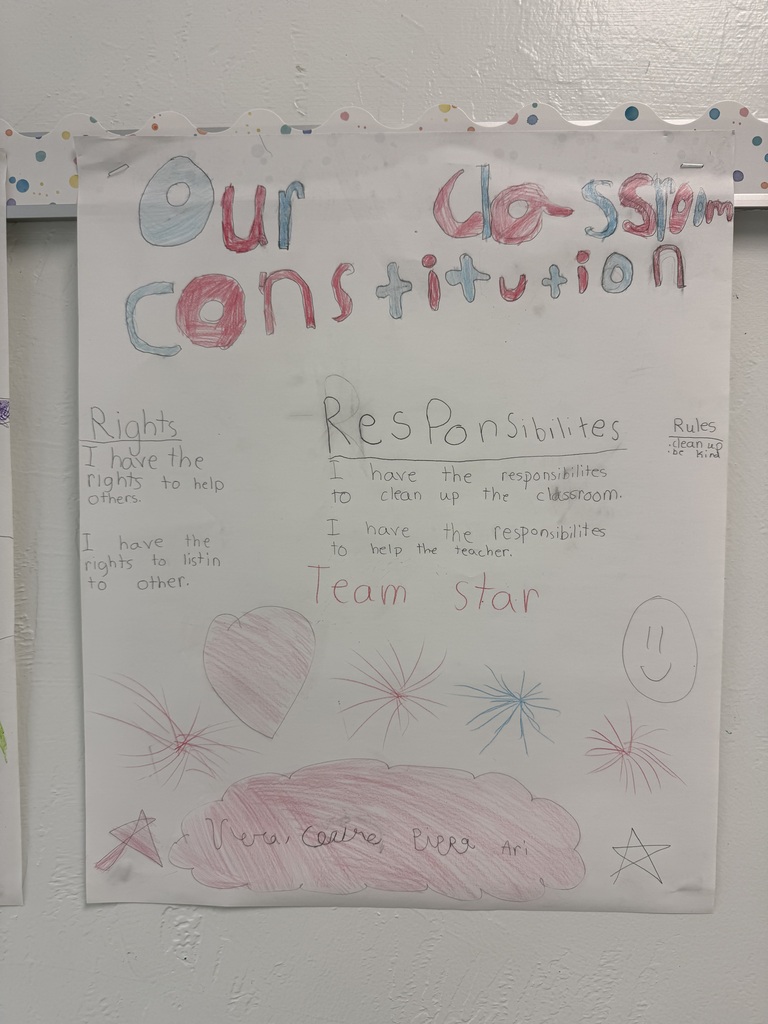 Our classroom
constitution
Rights
I have the
rights to help
others.
I have the
rights to listin
to other.
Responsibilites
I have the responsibilites
to clean up the classroom.
I have the responsibilites
to help the teacher.
Rules
·clean up
·be kind
Team star
Ari